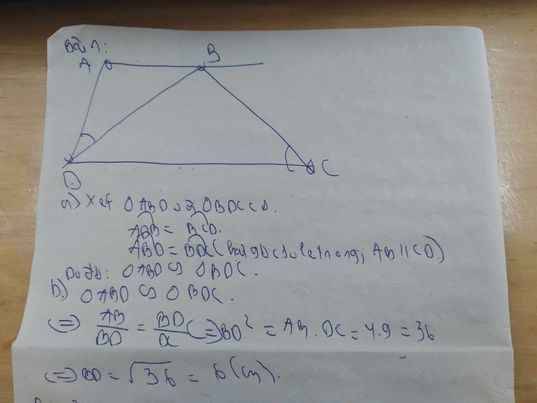 Bài 1:
A B
D C
a) Xét △ABD và △BDC có.
ADB = BCD.
ABD = BDC (hai góc so le trong, AB // CD)
Do đó: △ABD ∽ △BDC.
b) △ABD ∽ △BDC.
<=> AB/BD = BD/DC <=> BD² = AB . DC = 4.9 = 36
<=> BD = √36 = 6 (cm).